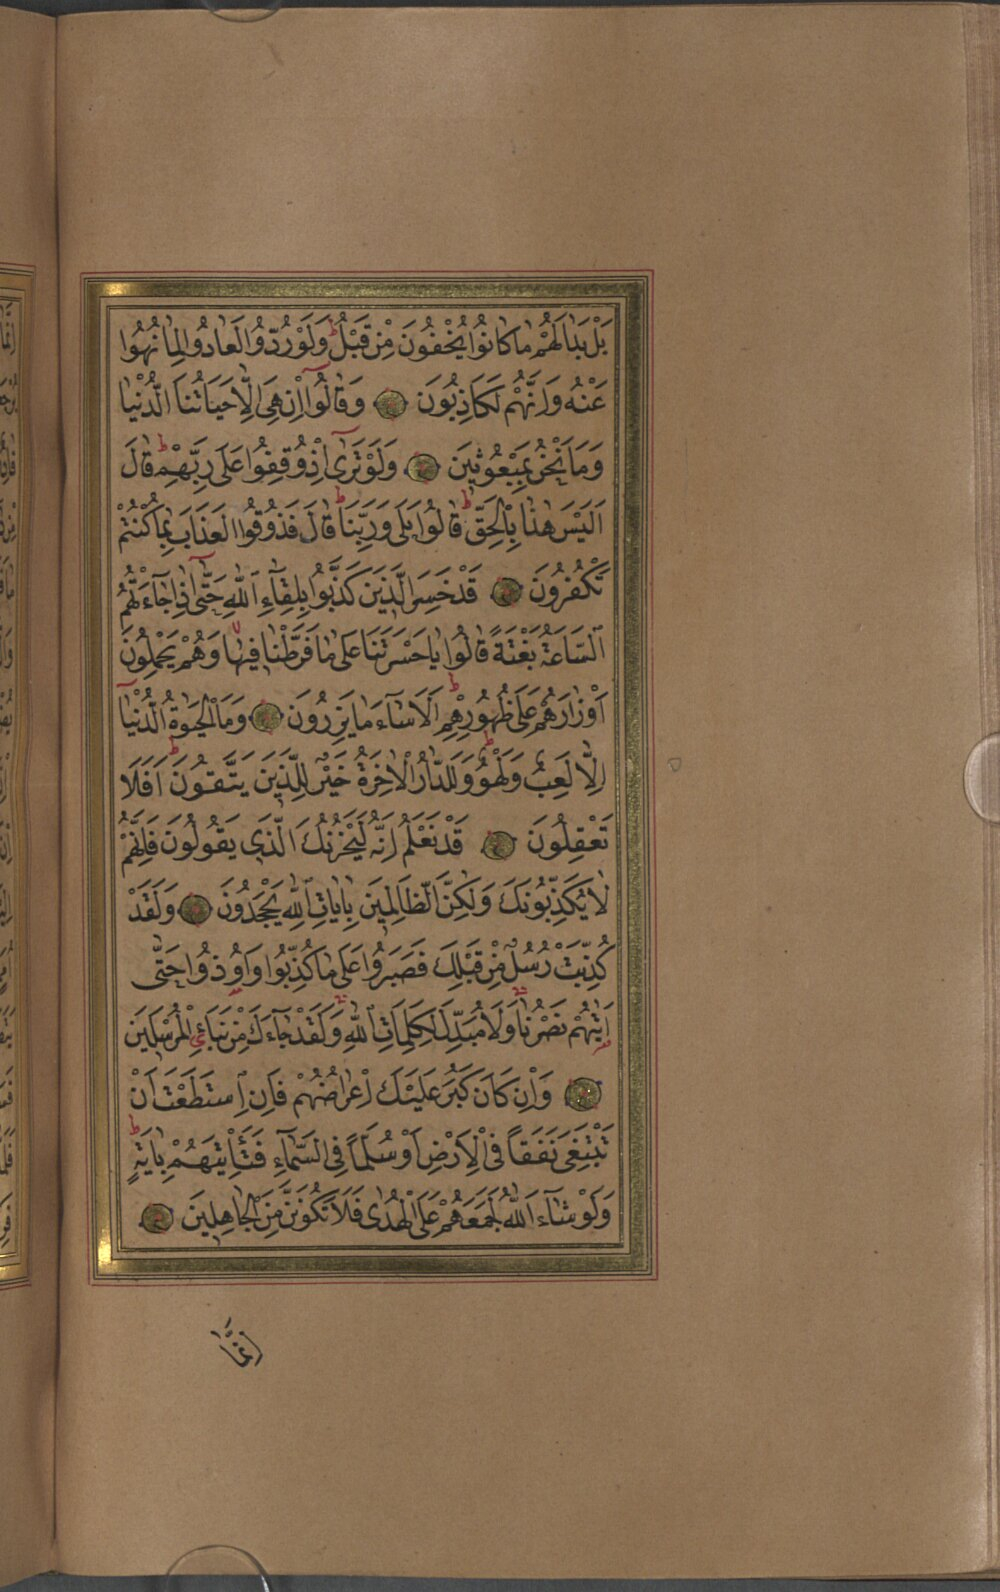 بَلْ بَدَا لَهُمْ مَا كَانُوا يُخْفُونَ مِنْ قَبْلُ ط وَلَوْ رُدُّوا لَعَادُوا لِمَا نُهُوا
عَنْهُ وَاِنَّهُمْ لَكَاذِبُونَ وَقَالُوا اِنْ هِيَ اِلَّا حَيَاتُنَا الدُّنْيَا
وَمَا نَحْنُ بِمَبْعُوثِينَ وَلَوْ تَرٰى اِذْ وُقِفُوا عَلٰى رَبِّهِمْ ط قَالَ
اَلَيْسَ هٰذَا بِالْحَقِّ ط قَالُوا بَلٰى وَرَبِّنَا ط قَالَ فَذُوقُوا الْعَذَابَ بِمَا كُنْتُمْ
تَكْفُرُونَ قَدْ خَسِرَ الَّذِينَ كَذَّبُوا بِلِقَاءِ اللّٰهِ حَتّٰى اِذَا جَاءَتْهُمُ
السَّاعَةُ بَغْتَةً قَالُوا يَا حَسْرَتَنَا عَلٰى مَا فَرَّطْنَا فِيهَا وَهُمْ يَحْمِلُونَ
اَوْزَارَهُمْ عَلٰى ظُهُورِهِمْ ط اَلَا سَاءَ مَا يَزِرُونَ وَمَا الْحَيٰوةُ الدُّنْيَا
اِلَّا لَعِبٌ وَلَهْوٌ ط وَلَلدَّارُ الْاٰخِرَةُ خَيْرٌ لِلَّذِينَ يَتَّقُونَ ط اَفَلَا
تَعْقِلُونَ قَدْ نَعْلَمُ اِنَّهُ لَيَحْزُنُكَ الَّذِي يَقُولُونَ فَاِنَّهُمْ
لَا يُكَذِّبُونَكَ وَلٰكِنَّ الظَّالِمِينَ بِاٰيَاتِ اللّٰهِ يَجْحَدُونَ وَلَقَدْ
كُذِّبَتْ رُسُلٌ مِنْ قَبْلِكَ فَصَبَرُوا عَلٰى مَا كُذِّبُوا وَاُوذُوا حَتّٰى
اَتٰيهُمْ نَصْرُنَا وَلَا مُبَدِّلَ لِكَلِمَاتِ اللّٰهِ وَلَقَدْ جَاءَكَ مِنْ نَبَاِئِ الْمُرْسَلِينَ
وَاِنْ كَانَ كَبُرَ عَلَيْكَ اِعْرَاضُهُمْ فَاِنِ اسْتَطَعْتَ اَنْ
تَبْتَغِيَ نَفَقًا فِي الْاَرْضِ اَوْ سُلَّمًا فِي السَّمَاءِ فَتَأْتِيَهُمْ بِاٰيَةٍ ط
وَلَوْ شَاءَ اللّٰهُ لَجَمَعَهُمْ عَلَى الْهُدٰى فَلَا تَكُونَنَّ مِنَ الْجَاهِلِينَ
اِنَّمَا